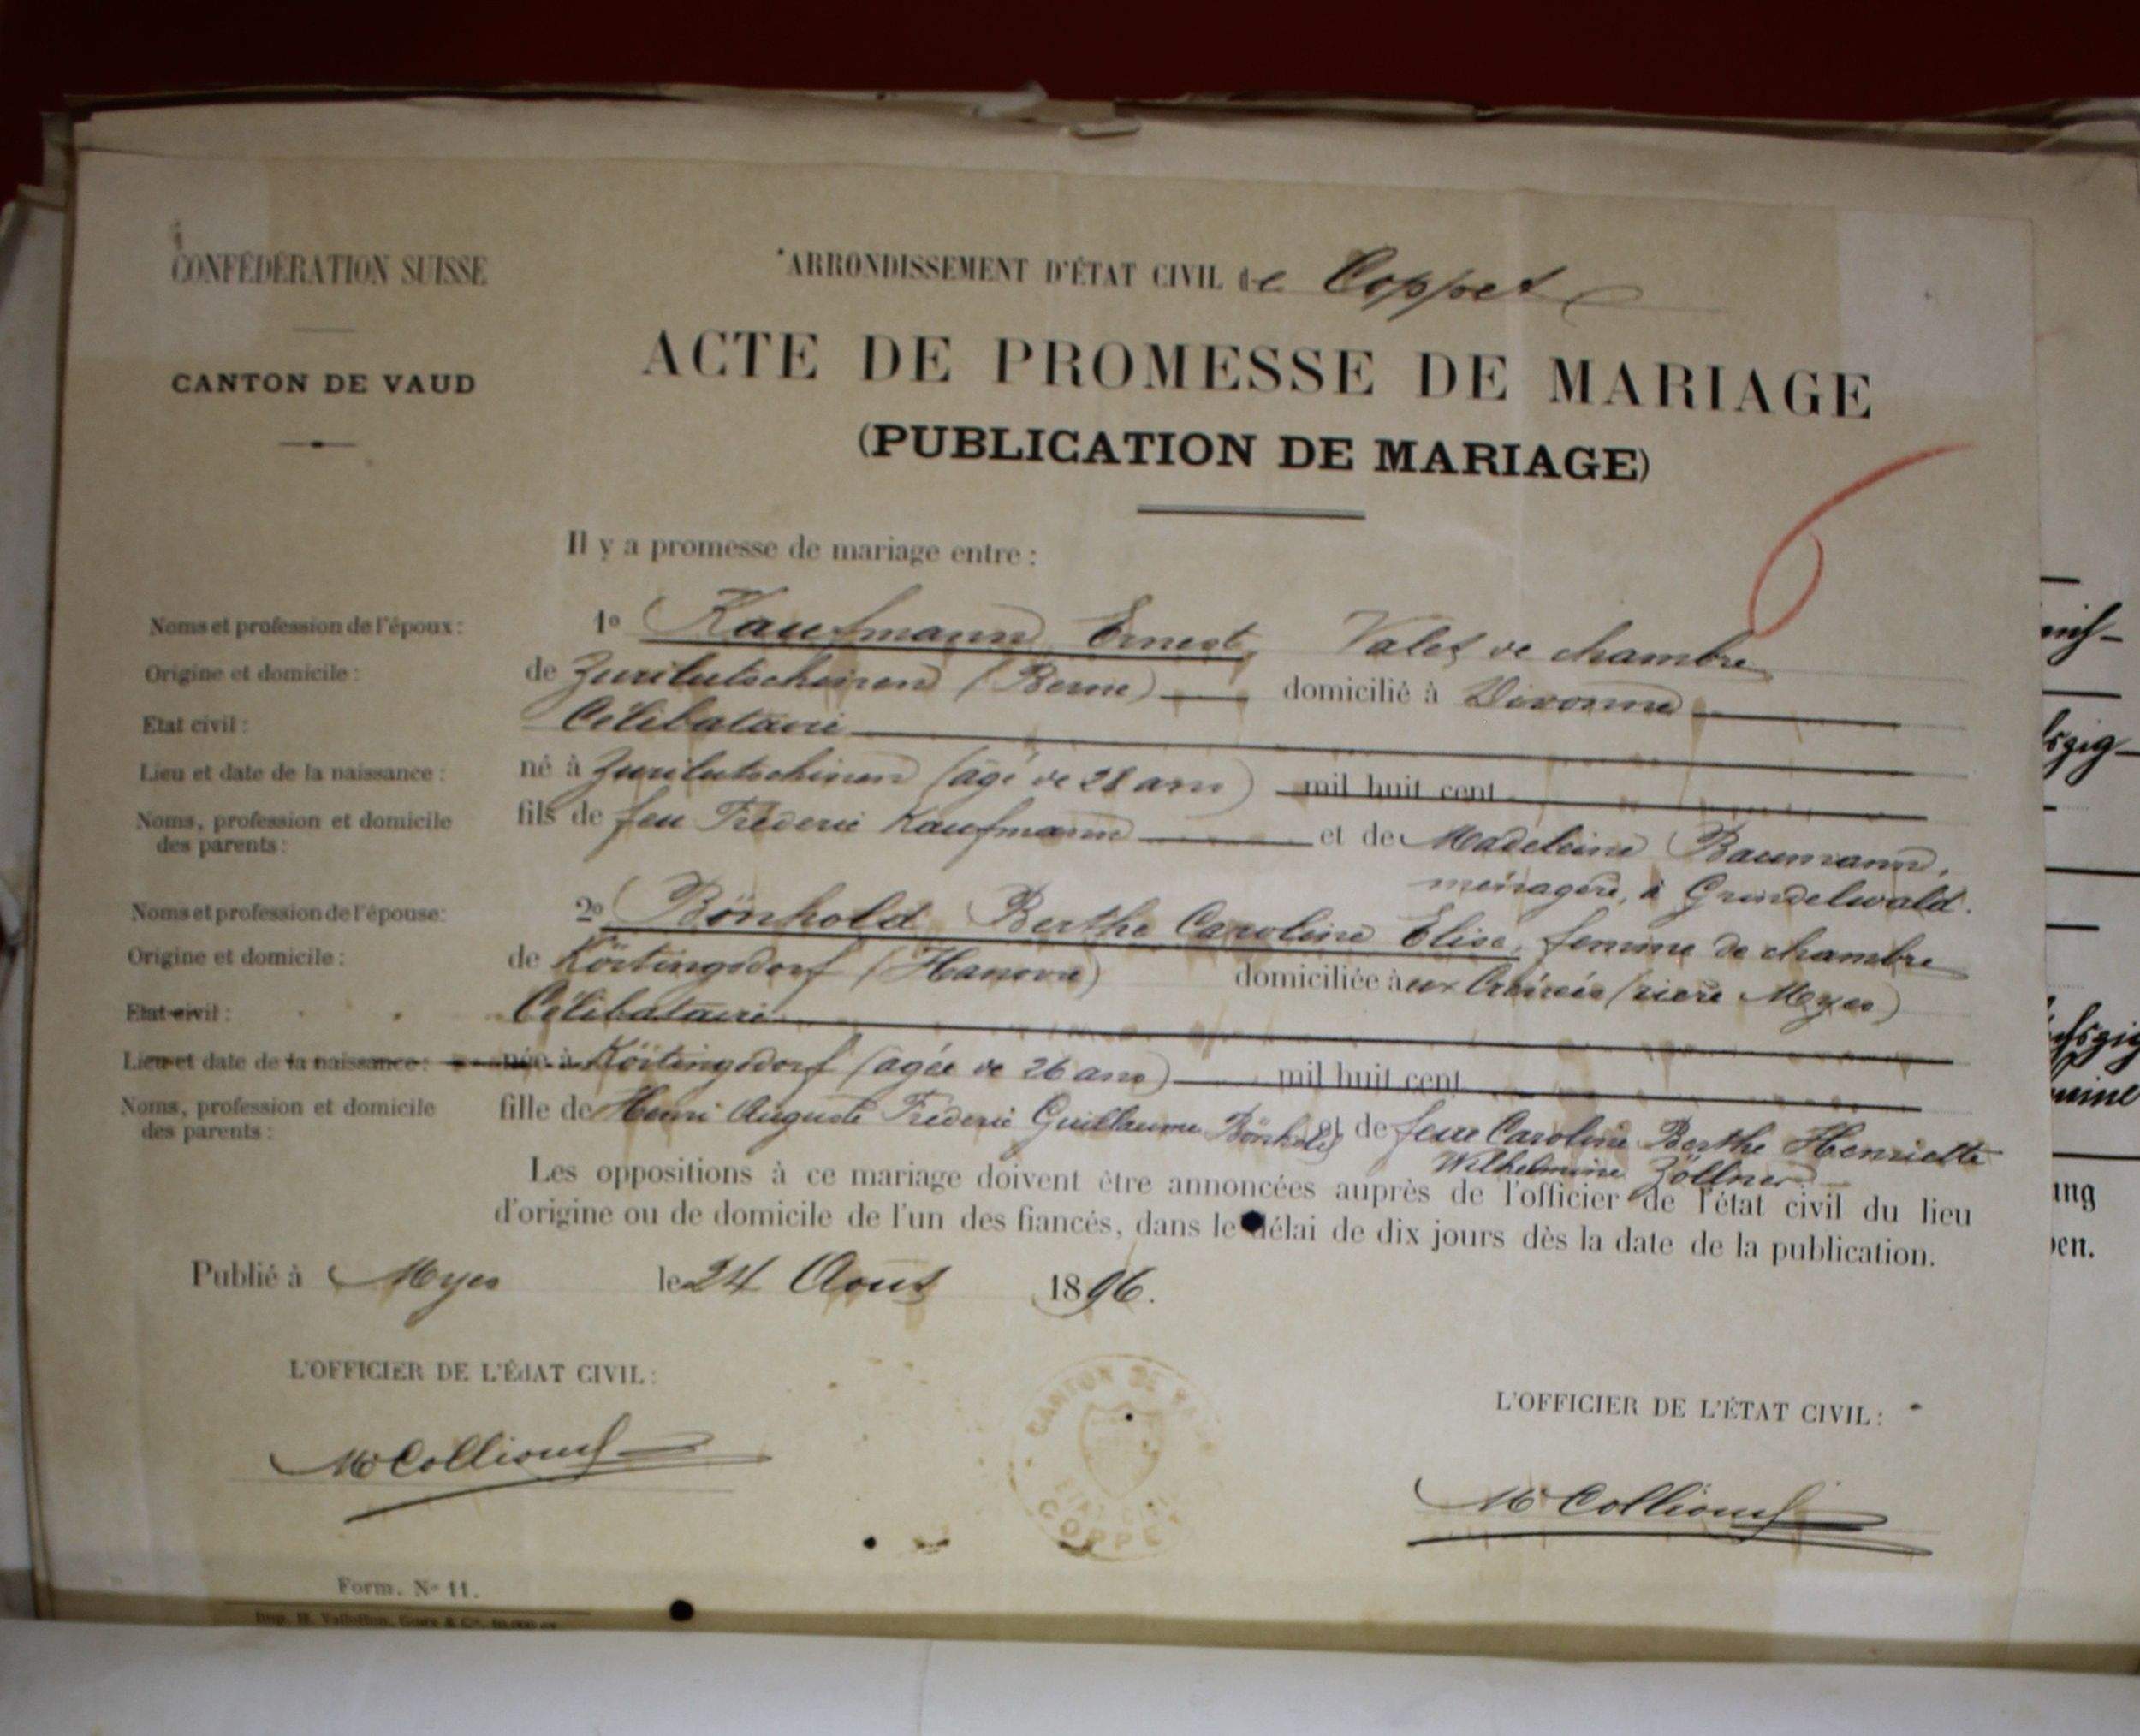 CONFÉDÉRATION SUISSE
CANTON DE VAUD
ARRONDISSEMENT D'ÉTAT CIVIL de Coppet
ACTE DE PROMESSE DE MARIAGE
(PUBLICATION DE MARIAGE)
6
Il y a promesse de mariage entre :
Noms et profession de l'époux : 1º Kaufmann Ernest, Valet de chambre
Origine et domicile : de Zweilutschinen (Berne) domicilié à Divonne
Etat civil : Célibataire
Lieu et date de la naissance : né à Zweilutschinen (âgé de 28 ans) mil huit cent
Noms, profession et domicile des parents : fils de feu Fréderic Kaufmann et de Madeleine Baumann,
ménagère, à Grindelwald.
Noms et profession de l'épouse : 2º Bönhold Berthe Caroline Elise, femme de chambre
Origine et domicile : de Körtingsdorf (Hanovre) domiciliée à aux (riere Myes)
Etat civil : Célibataire
Lieu et date de la naissance : née à Körtingsdorf (agée de 26 ans) mil huit cent
Noms, profession et domicile des parents : fille de Henri Auguste Fréderic Guillaume Bönhold et de feue Caroline Berthe Henriette
Wilhelmine Zöllner
Les oppositions à ce mariage doivent être annoncées auprès de l'officier de l'état civil du lieu
d'origine ou de domicile de l'un des fiancés, dans le délai de dix jours dès la date de la publication.
Publié à Myes le 24 Aout 1896.
L'OFFICIER DE L'ÉTAT CIVIL :
L'OFFICIER DE L'ÉTAT CIVIL :
CANTON DE VAUD
ETAT CIVIL
COPPET
Form. Nº 11.
ung
en.